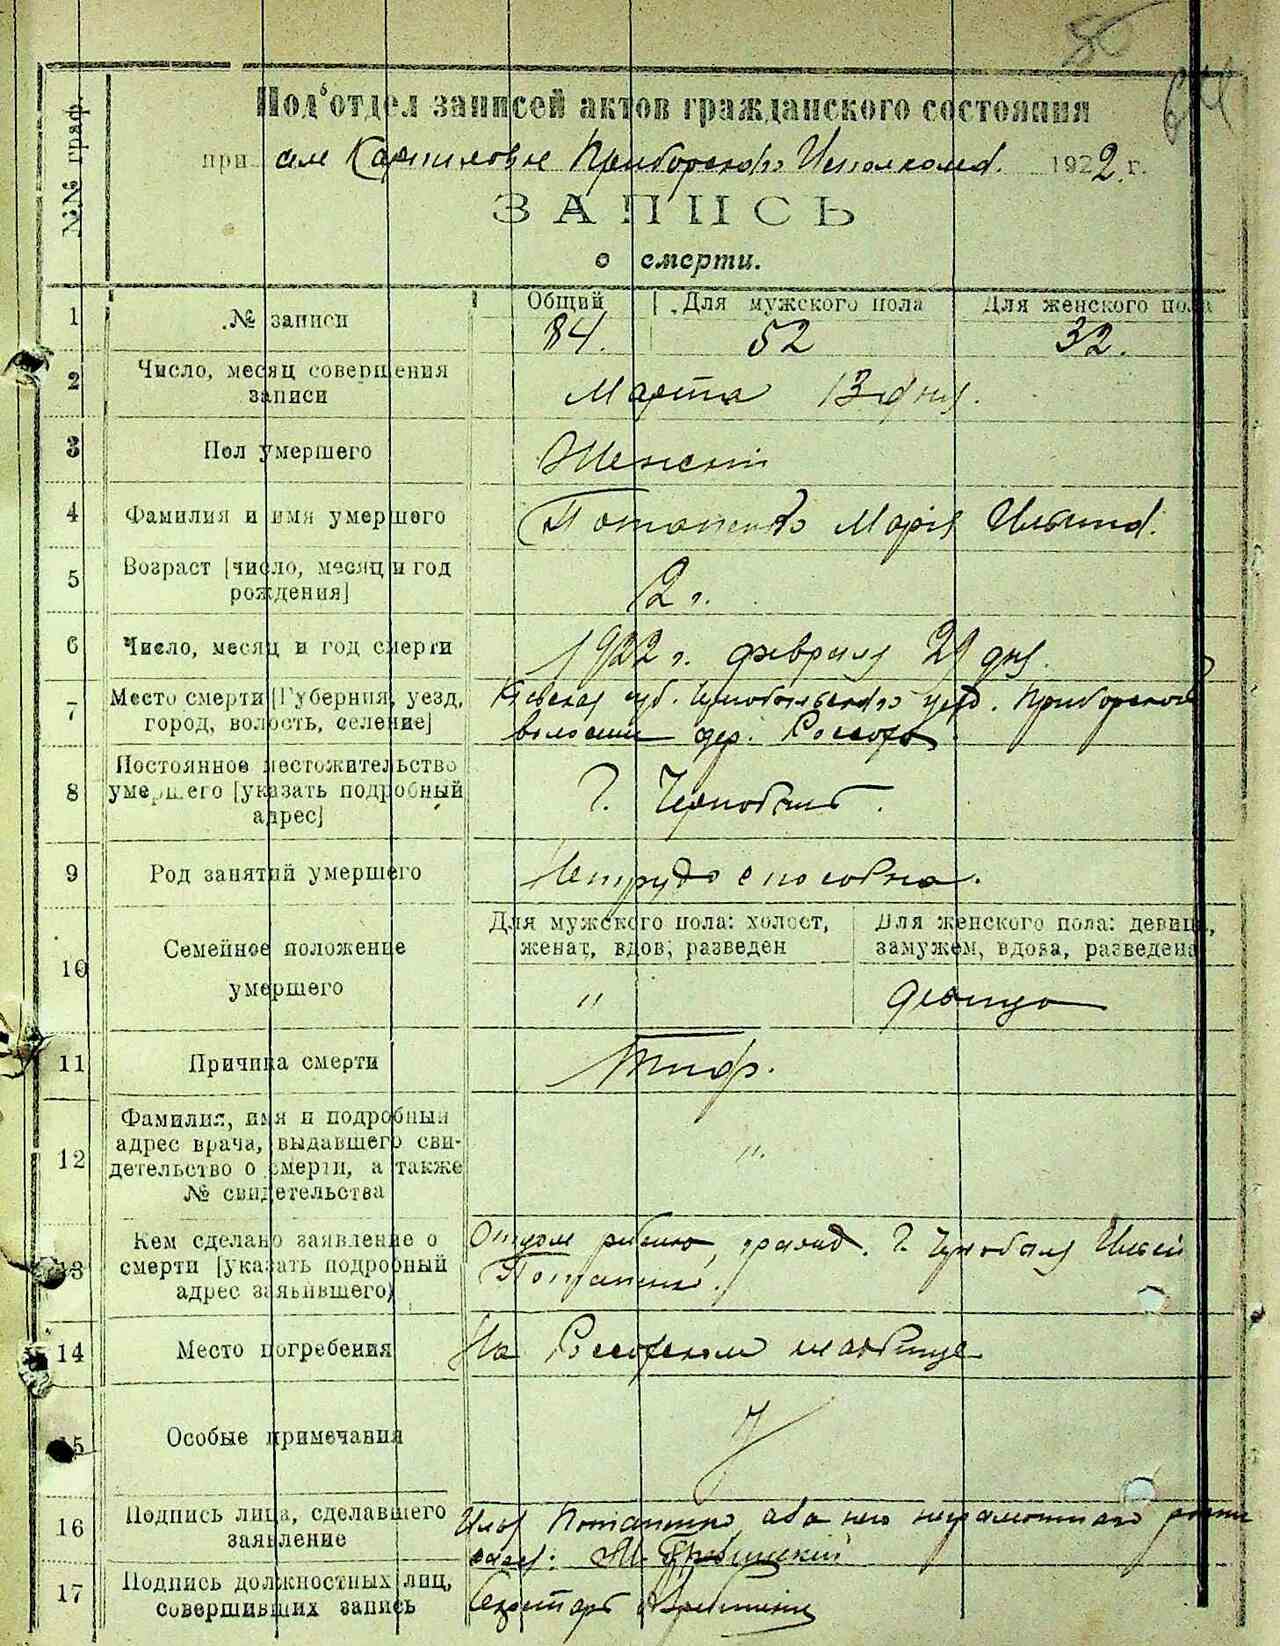 50
64
Подотдел записей актов гражданского состояния
при селе Карпиловке Приборского Исполкома. 1922 г.
ЗАПИСЬ
о смерти.
№№ граф.
1 № записи Общий Для мужского пола Для женского пола
84. 52 32.
2 Число, месяц совершения записи
Марта 13 дня.
3 Пол умершего
Женский
4 Фамилия и имя умершего
Потапенко Мария Ильина.
5 Возраст [число, месяц и год рождения]
2 г.
6 Число, месяц и год смерти
1922 г. февраля 29 дня.
7 Место смерти [Губерния, уезд, город, волость, селение]
Киевская губ. Чернобыльского уезд. Приборской
волости дер. Россоха
8 Постоянное местожительство умершего [указать подробный адрес]
г. Чернобыль.
9 Род занятий умершего
Нетрудоспособна.
10 Семейное положение умершего
Для мужского пола: холост, женат, вдов, разведен
Для женского пола: девица, замужем, вдова, разведена
" девица
11 Причина смерти
Тиф.
12 Фамилия, имя и подробный адрес врача, выдавшего свидетельство о смерти, а также № свидетельства
".
13 Кем сделано заявление о смерти [указать подробный адрес заявившего]
Отцом ребенка, гражд. г. Чернобыля Ильей
14 Место погребения
На Россохском кладбище
15 Особые примечания
16 Подпись лица, сделавшего заявление
Илья Потапенко, а за него неграмотного
17 Подпись должностных лиц, совершивших запись
Секретарь